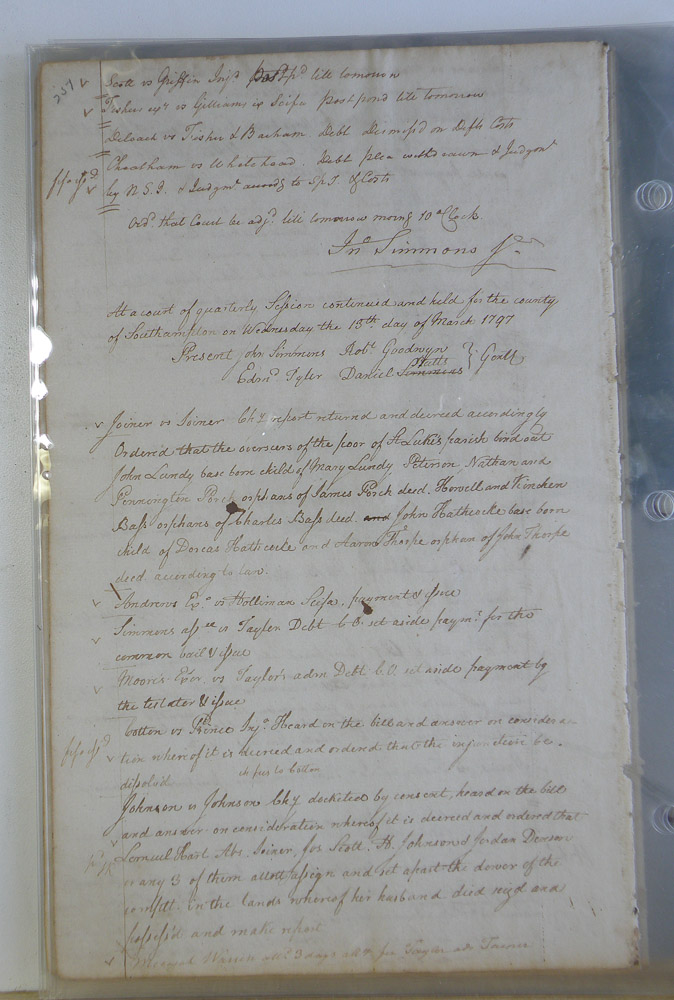 237 Scott vs Griffin Injo postpd till tomorrow
Fishers exr vs Gilliams ex Scifa postpond till tomorrow
Deloach vs Fisher & Barham Debt Dismissd on Defts Costs
Cheatham vs Whitehead. Debt plea withdrawn & Judgmt
fifa issd by N.S.I. & Judgmt accordg to Spt. & Costs
Ordd. that Court be adjd. till tomorrow morng 10 oClock
Jno Simmons Jr
At a court of quarterly Session continued and held for the county
of Southampton on Wednesday the 15th. day of March 1797
Present John Simmons Robt. Goodwyn
Edwd. Tyler Daniel Simmons Butts } Gentl
Joiner vs Joiner Chy report returnd and decreed accordingly
Ordered that the overseers of the poor of St. Lukes parish bind out
John Lundy base born child of Mary Lundy Peterson, Nathan and
Pennington Porch orphans of James Porch deed. Howell and Kinchen
Bass orphans of Charles Bass deed. and John Hathcocke base born
child of Dorcas Hathcocke and Aaron Thorpe orphan of John Thorpe
deed according to law.
Andrews Exo vs Holliman Scifa. payment & issue
Simmons assee vs Tayler Debt C O set aside paymt. for the
common bail & issue
Moore's Exor vs Taylor's adm Debt C.O. set aside payment by
the testator & issue
Cotton vs Prince Injo. Heard on the bill and answer on considera
fifa issd tion whereof it is decreed and ordered that the injunction be
dissolved
Johnson vs Johnson Chy docketed by consent, heard on the bill
and answer on consideration whereof it is decreed and ordered that
Lemuel Hart Abs. Joiner, Jos Scott. H. Johnson & Jordan Denson
or any 3 of them allott assign and set apart the dower of the
complt. in the lands whereof her husband died seizd and
possess'd and make report
Warren 3 days for Taylor